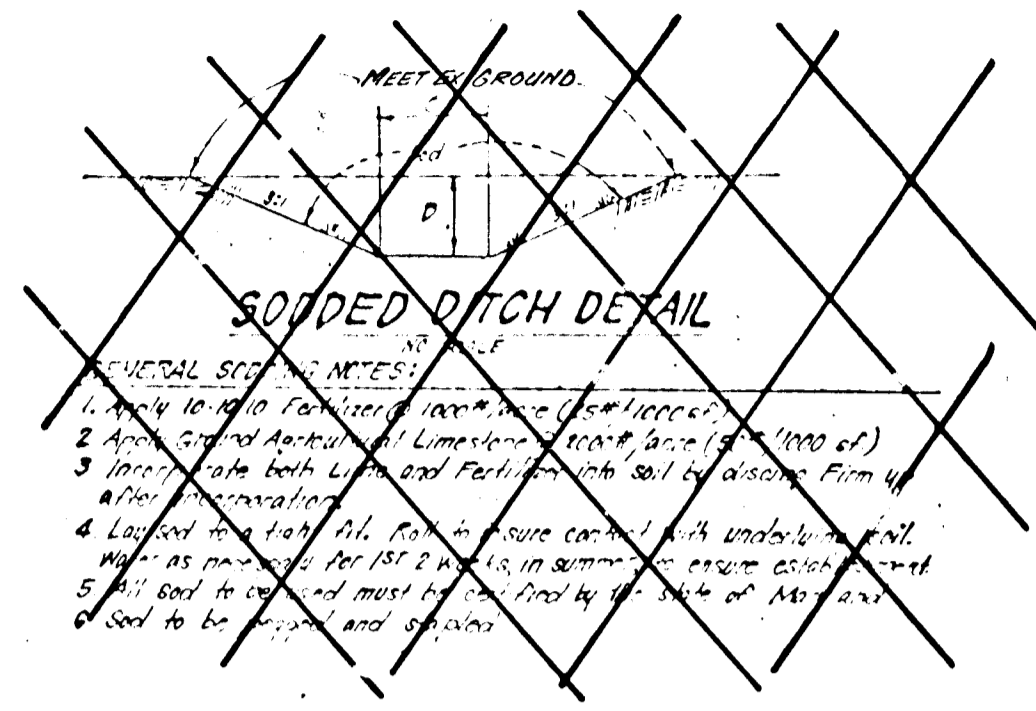 MEET EX GROUND
D
SODDED DITCH DETAIL
NO SCALE
GENERAL SODDING NOTES:
1. Apply 10-10-10 Fertilizer @ 1000#/acre (25#/1000 sf)
2 Apply Ground Agricultural Limestone @ 2000#/acre (50#/1000 sf)
3 Incorporate both Lime and Fertilizer into soil by discing Firm up
after incorporation.
4. Lay sod to a tight fit. Roll to ensure contact with underlying soil.
Water as necessary for 1st 2 weeks, in summer, to ensure establishment.
5 All sod to be used must be certified by the state of Maryland
6 Sod to be pegged and stapled